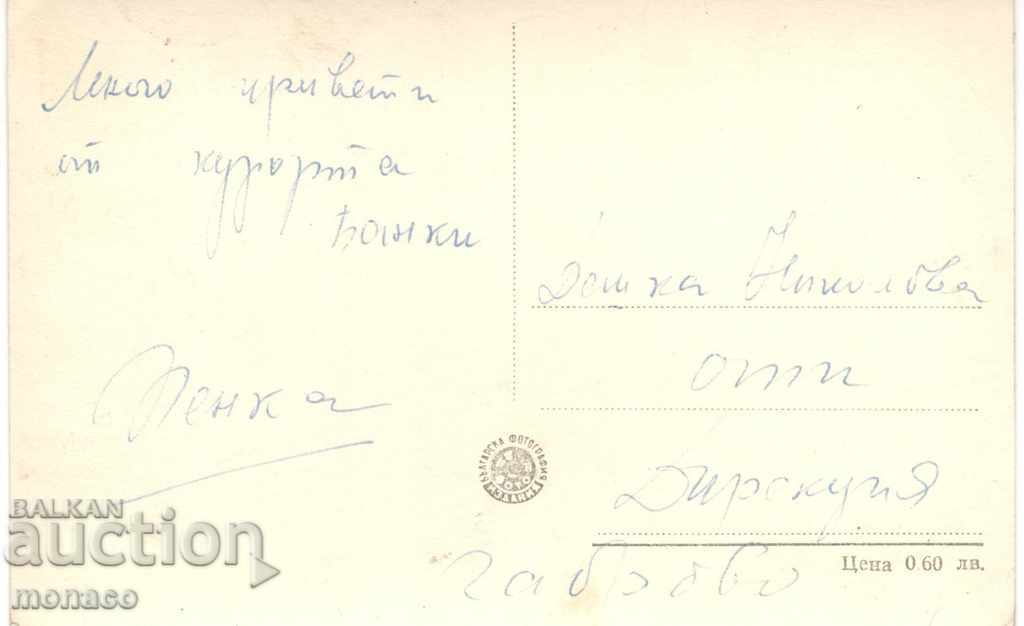 Много привети
от курорта
Банки
Пенка
Дешка Николова
Дирекция
Габрово
БЪЛГАРСКА ФОТОГРАФИЯ
ИЗДАНИЕ
Цена 0.60 лв.
BALKAN
auction
monaco